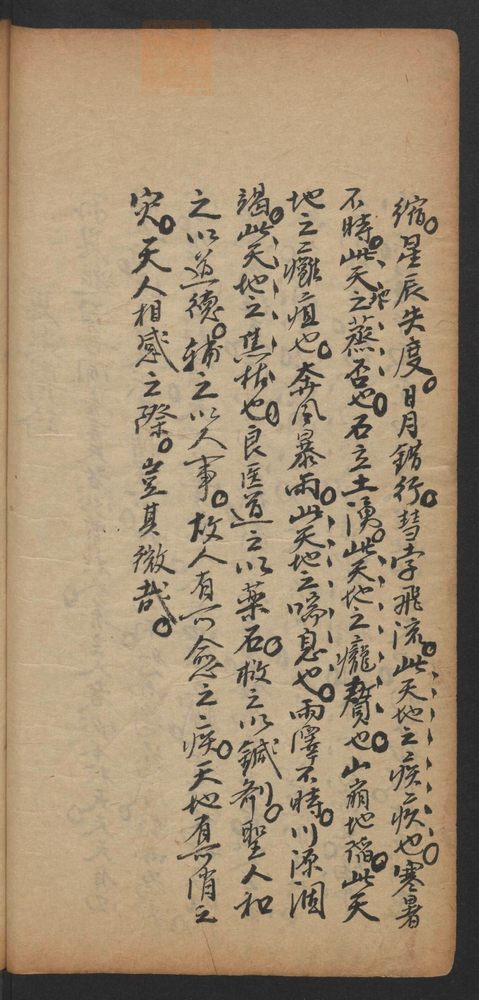 縮。星辰失度。日月錯行。彗孛飛流。此天地之疾疢也。寒暑
不時。此天地之蒸否也。石立土湧。此天地之癰贅也。山崩地陷。此天
地之癰疽也。奔风暴雨。此天地之喘息也。雨澤不時。川源涸
竭。此天地之焦枯也。良医道之以薬石。救之以鍼剂。聖人和
之以道德。辅之以人事。故人有可愈之疾。天地有可消之
灾。天人相感之際。豈其微哉。